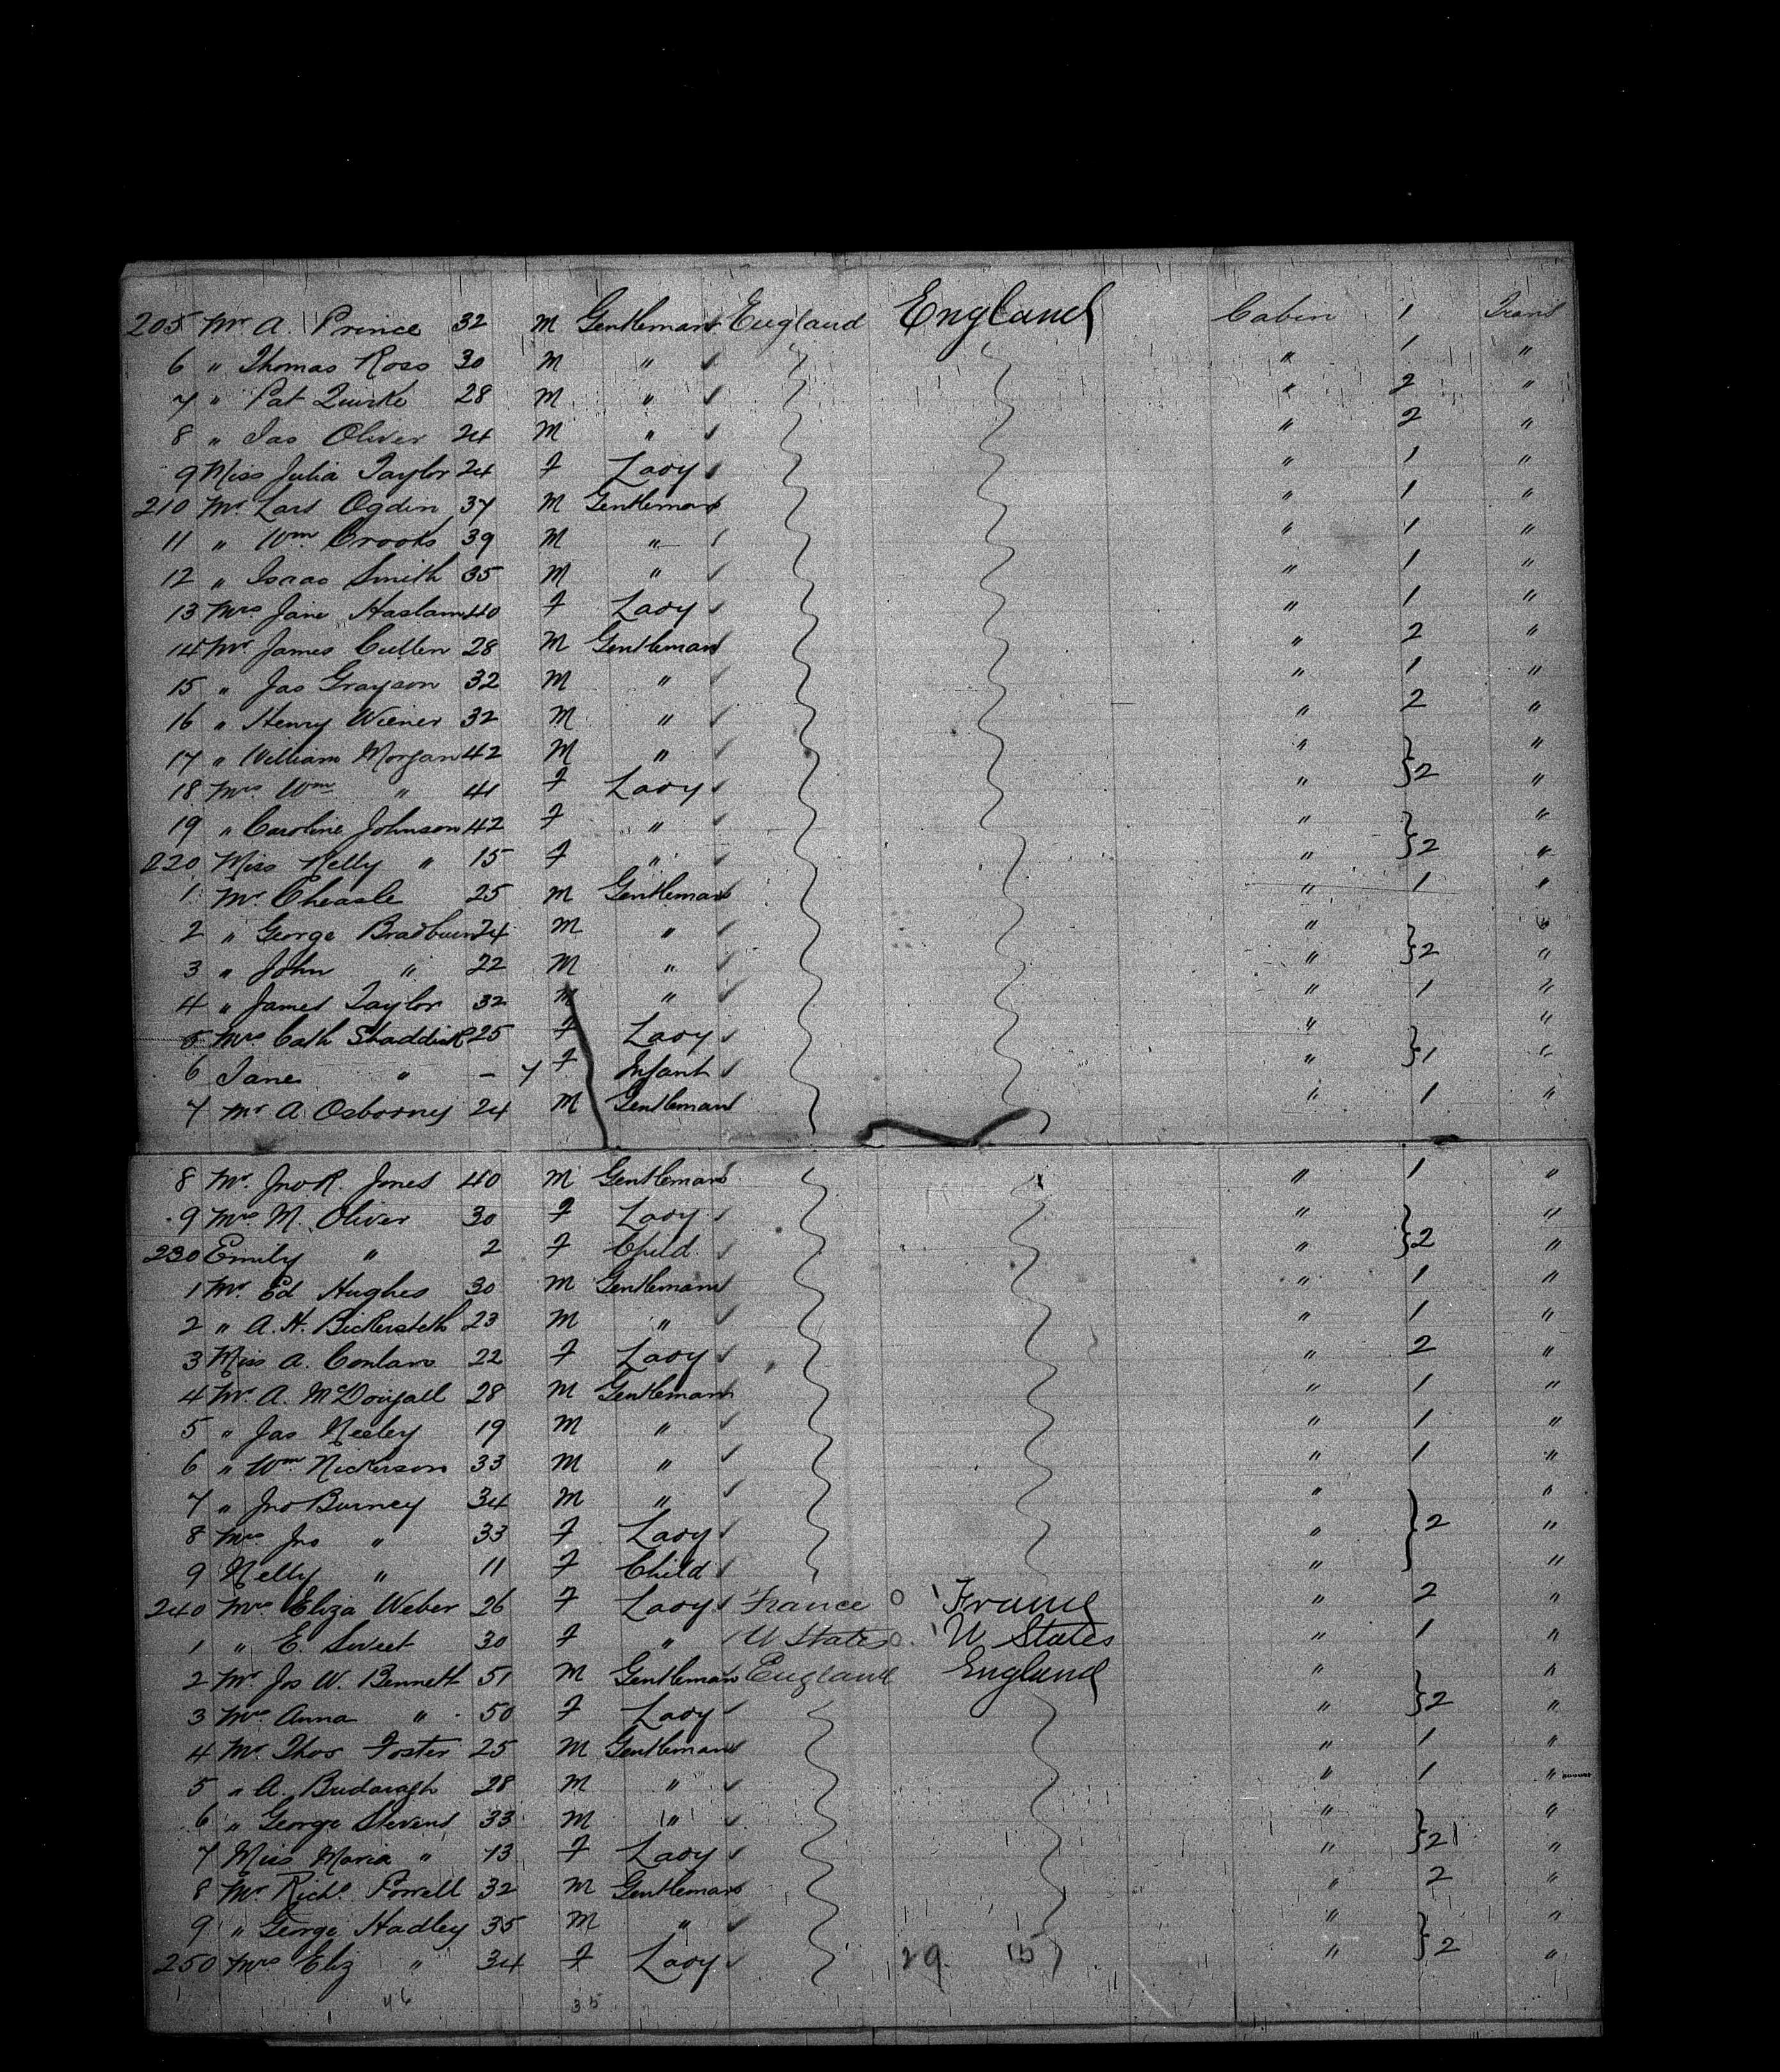 205 Mr A. Prince 32 M Gentleman England England Cabin 1 Trans
6 " Thomas Ross 30 M " " 1 "
7 " Pat Quirke 28 M " " 2 "
8 " Jas Oliver 24 M " " 2 "
9 Miss Julia Taylor 24 F Lady " 1 "
210 Mr Lars Ogden 37 M Gentleman " 1 "
11 " Wm Crooks 39 M " " 1 "
12 " Isaac Smith 35 M " " 1 "
13 Mrs Jane Haslam 40 F Lady " 1 "
14 Mr James Cullen 28 M Gentleman " 2 "
15 " Jas Grayson 32 M " " 1 "
16 " Henry Wiener 32 M " " 2 "
17 " William Morgan 42 M " " "
18 Mrs Wm " 41 F Lady " } 2 "
19 " Caroline Johnson 42 F " " "
220 Miss Nelly " 15 F " " } 2 "
1 Mr Cheasle 25 M Gentleman " 1 "
2 " George Bradburn 24 M " " "
3 " John " 22 M " " } 2 "
4 " James Taylor 32 M " " 1 "
5 Mrs Cath Shaddick 25 F Lady " "
6 Jane " - 7 F Infant " } 1 "
7 Mr A. Osborney 24 M Gentleman " 1 "
8 Mr Jno R. Jones 40 M Gentleman " 1 "
9 Mrs M. Oliver 30 F Lady " "
230 Emily " 2 F Child " } 2 "
1 Mr Ed Hughes 30 M Gentleman " 1 "
2 " A. H. Bickersteth 23 M " " 1 "
3 Miss A. Conlan 22 F Lady " 2 "
4 Mr A. McDougall 28 M Gentleman " 1 "
5 " Jas Neeley 19 M " " 1 "
6 " Wm Nickerson 33 M " " 1 "
7 " Jno Burney 34 M " " "
8 Mrs Jno " 33 F Lady " } 2 "
9 Nelly " 11 F Child " "
240 Mrs Eliza Weber 26 F Lady France France " 2 "
1 " E. Sweet 30 F " U States U States " 1 "
2 Mr Jos W. Bennett 51 M Gentleman England England " "
3 Mrs Anna " 50 F Lady " } 2 "
4 Mr Thos Foster 25 M Gentleman " 1 "
5 " A. 28 M " " 1 "
6 " George Stevens 33 M " " "
7 Miss Maria " 13 F Lady " } 2 "
8 Mr Richd Powell 32 M Gentleman " 2 "
9 " George Hadley 35 M " " "
250 Mrs Eliz " 34 F Lady 29 15 " } 2 "
46 35